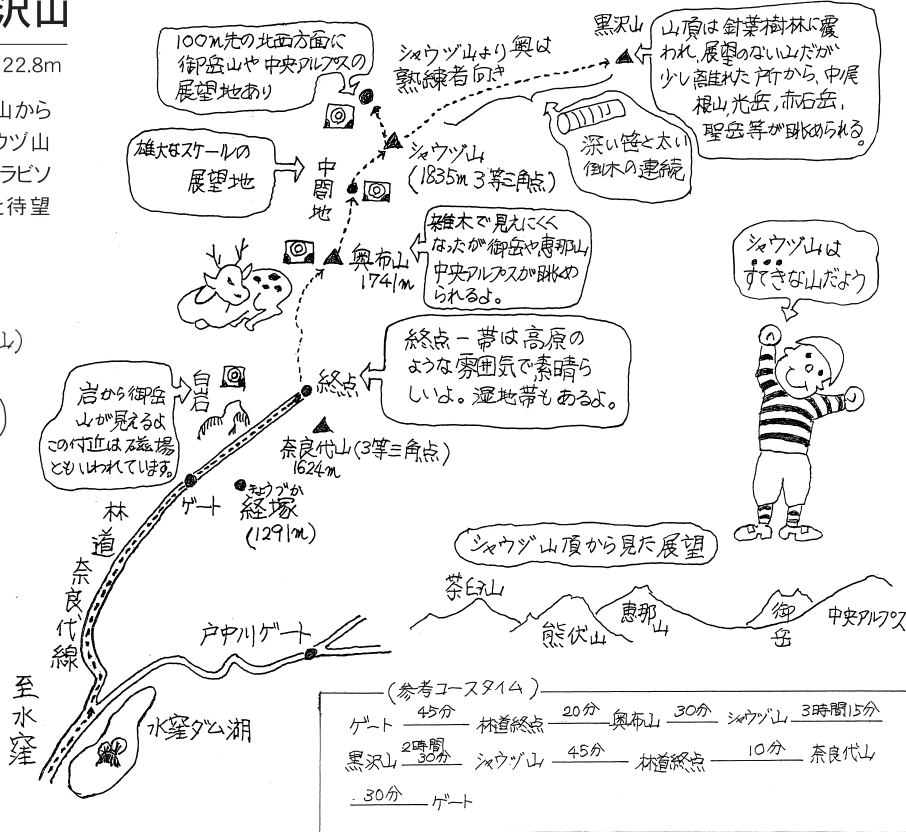 沢山
22.8m
山から
ウヅ山
ラビソ
と待望
山)
100m先の北西方面に
御岳山や中央アルプスの
展望地あり
シャウヅ山より奥は
熟練者向き
黒沢山
山頂は針葉樹林に覆
われ、展望のない山だが
少し離れた所から、中ノ尾
根山、光岳、赤石岳、
聖岳等が眺められる。
深い笹と太い
倒木の連続
雄大なスケールの
展望地
中間地
シャウヅ山
(1835m 3等三角点)
雑木で見えにくく
なったが御岳や恵那山
中央アルプスが眺め
られるよ。
奥布山
1741m
シャウヅ山は
すてきな山だよう
終点一帯は高原の
ような雰囲気で素晴ら
しいよ。湿地帯もあるよ。
終点
白岩
岩から御岳
山が見えるよ
この付近は磁場
ともいわれています。
奈良代山(3等三角点)
1624m
ゲート
きょうづか
経塚
(1291m)
林道奈良代線
戸中川ゲート
至水窪
水窪ダム湖
シャウヅ山頂から見た展望
茶臼山
熊伏山
恵那山
御岳
中央アルプス
(参考コースタイム)
ゲート 45分 林道終点 20分 奥布山 30分 シャウヅ山 3時間15分
黒沢山 2時間30分 シャウヅ山 45分 林道終点 10分 奈良代山
30分 ゲート